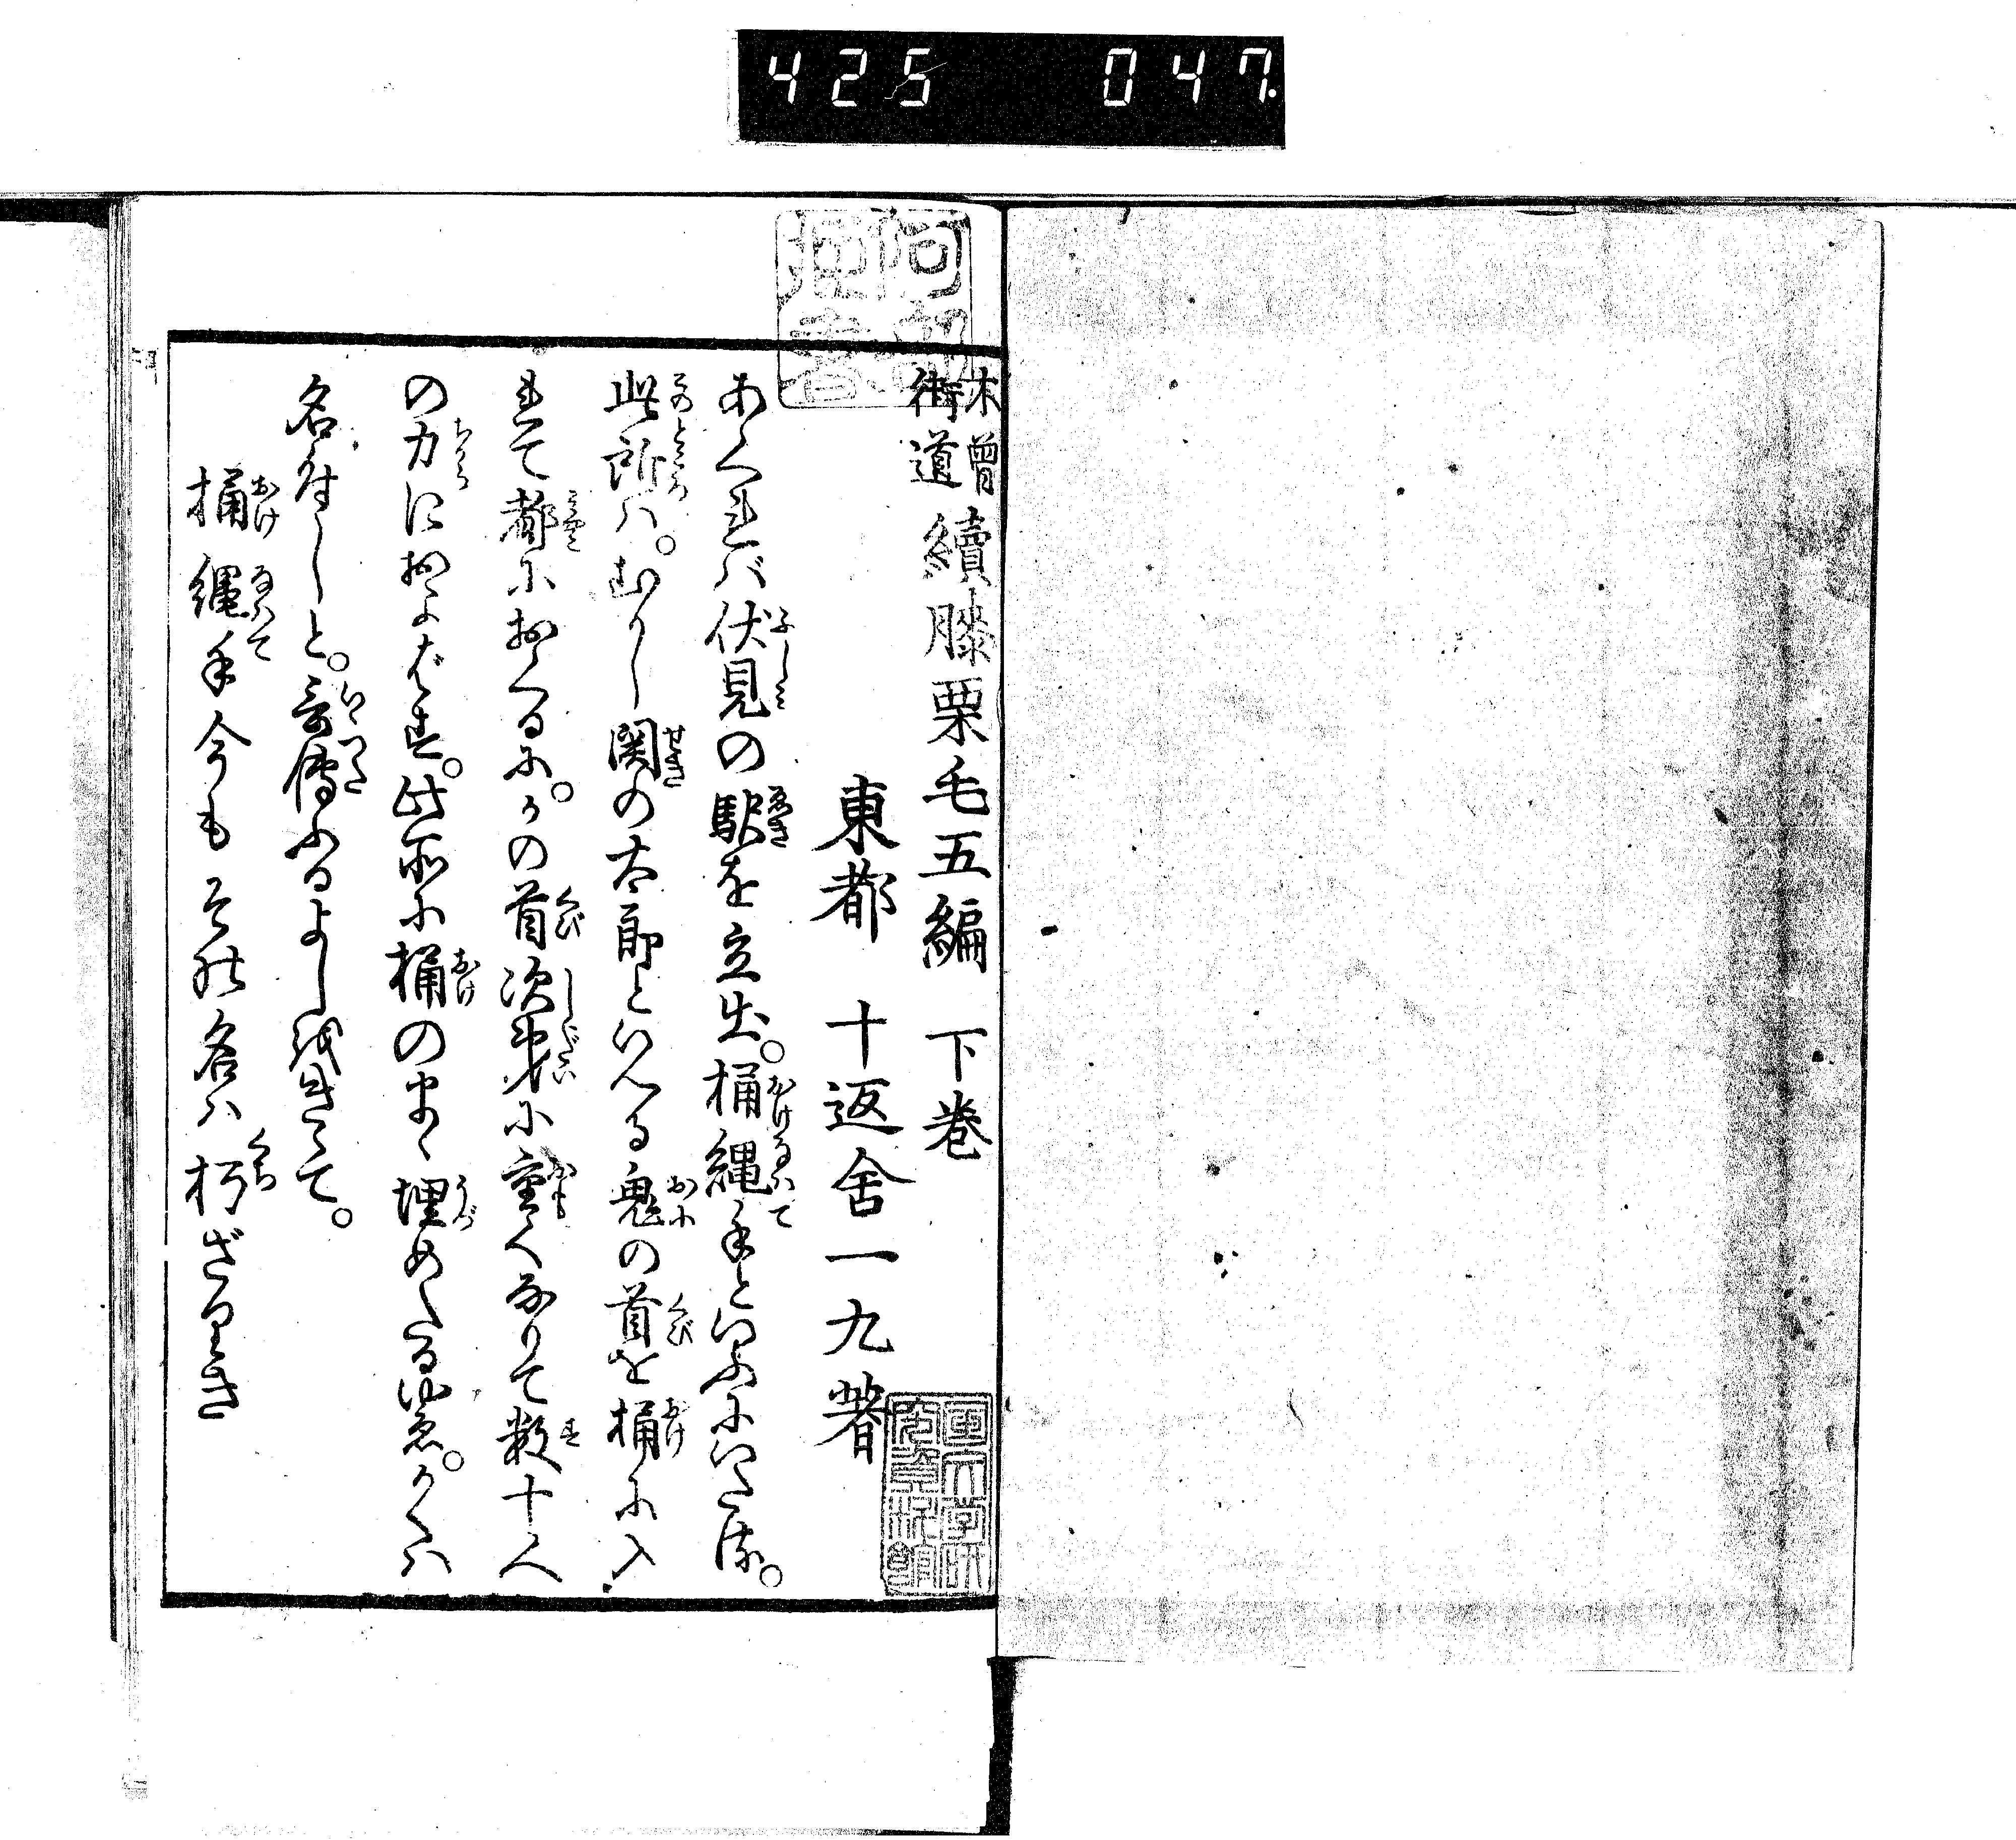 425 047
木曾
街道
續膝栗毛五編 下巻
東都 十返舍一九著
あくれバ伏見の駅を立出。桶縄手といふにいたる。
此所ハ。むかし関の太郎といへる鬼の首を桶に入
れて都におくるに。かの首次第に重くなりて数十人
の力におよばず。此所に桶のまゝ埋めたるゆゑ。かくハ
名付しと。言傳ふるよしをきゝて。
桶縄手今もその名ハ朽ざりき